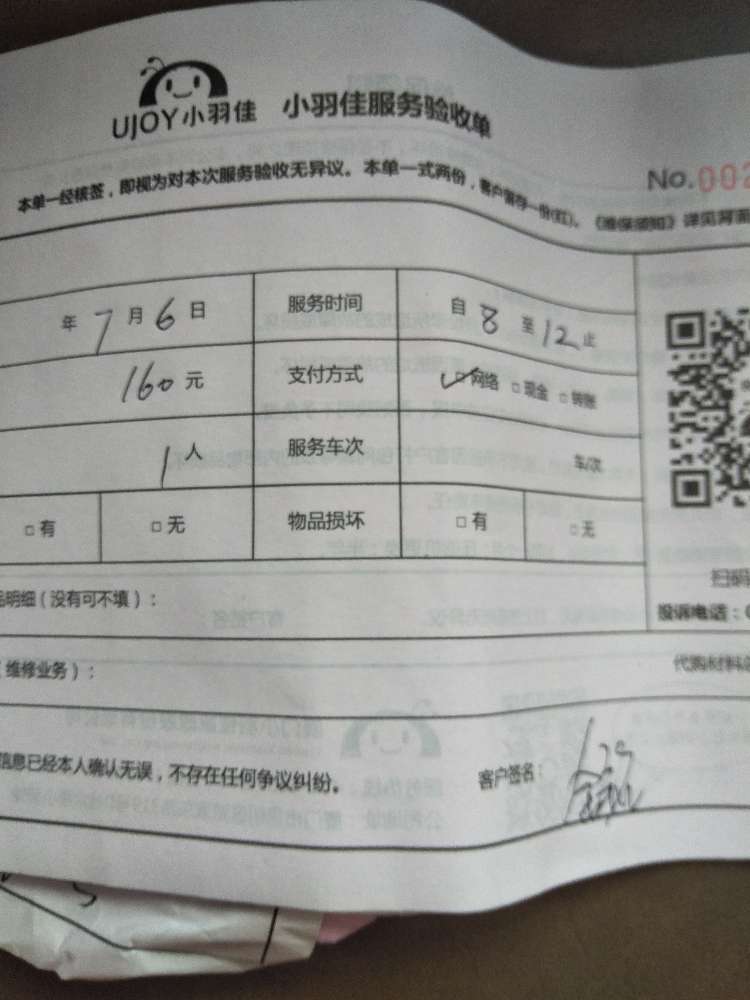 UJOY小羽佳 小羽佳服务验收单
本单一经核签，即视为对本次服务验收无异议。本单一式两份，客户留存一份(红)。《维保须知》详见背面
No.002
年 7 月 6 日 服务时间 自 8 至 12 止
160 元 支付方式 ✓□网络 □现金 □转账
1 人 服务车次 车/次
□有 □无 物品损坏 □有 □无
品明细（没有可不填）：
投诉电话：0
（维修业务）： 代购材料
信息已经本人确认无误，不存在任何争议纠纷。 客户签名：